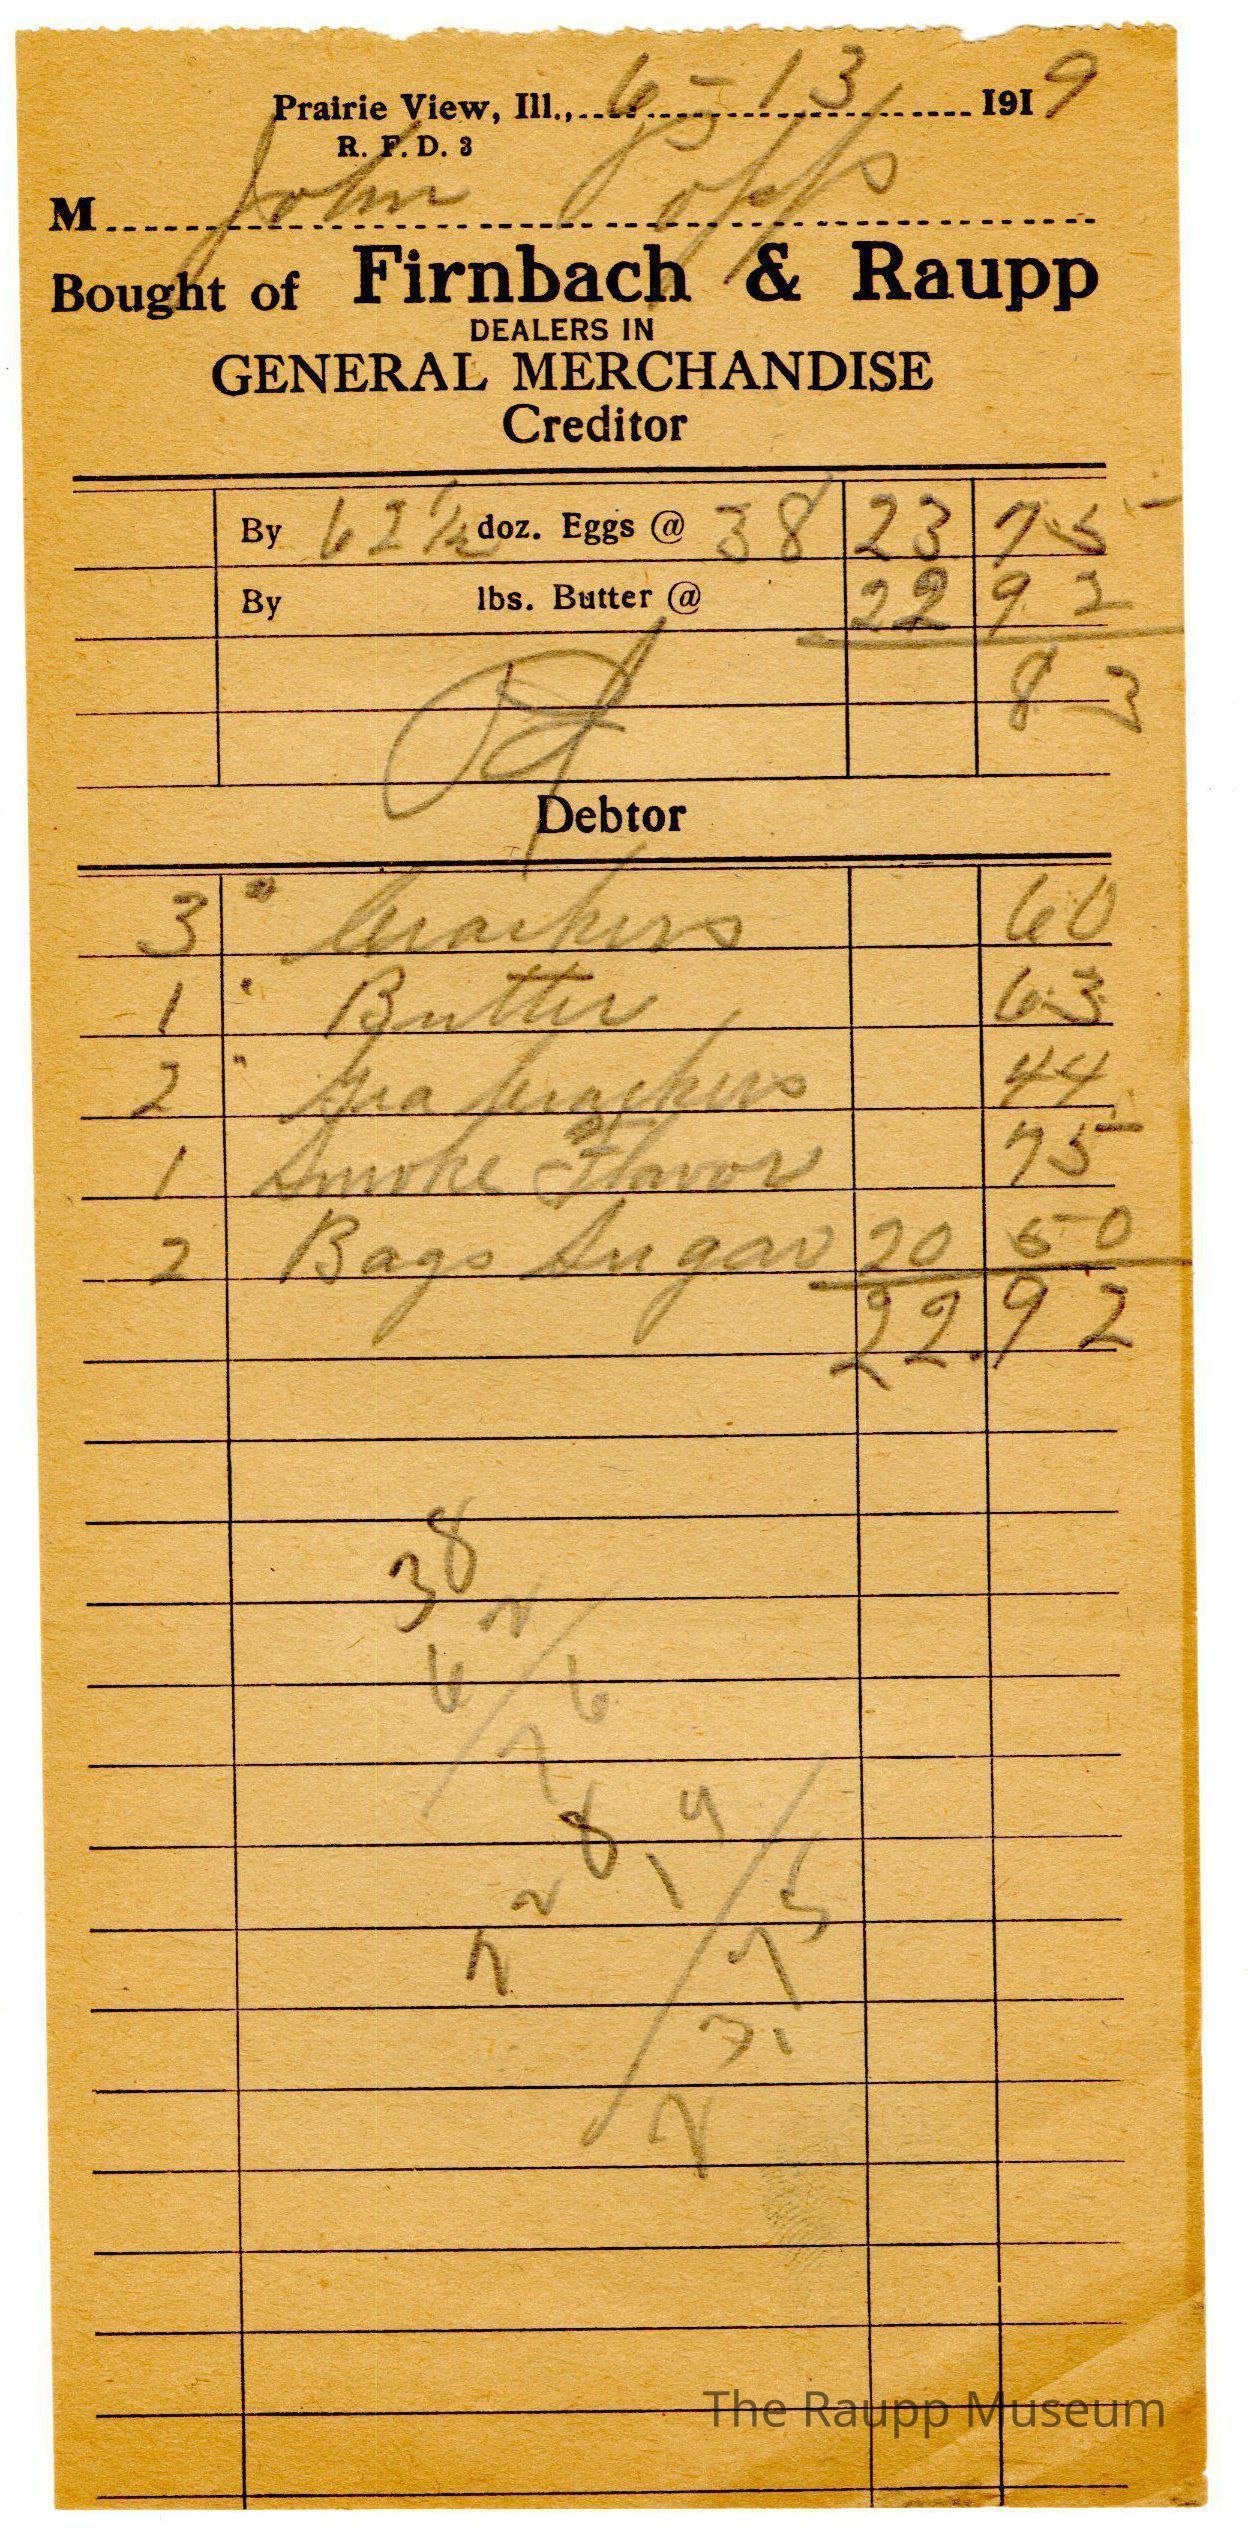 Prairie View, Ill., 6-13 1919
R. F. D. 3
M John Popp
Bought of Firnbach & Raupp
DEALERS IN
GENERAL MERCHANDISE
Creditor
By 62 1/2 doz. Eggs @ 38 23 75
By lbs. Butter @ 22 92
83
Debtor
3 " Crackers 60
1 " Butter 63
2 " Gra Crackers 44
1 Smoke Flavor 75
2 Bags Sugar 20 50
22.92
38
The Raupp Museum